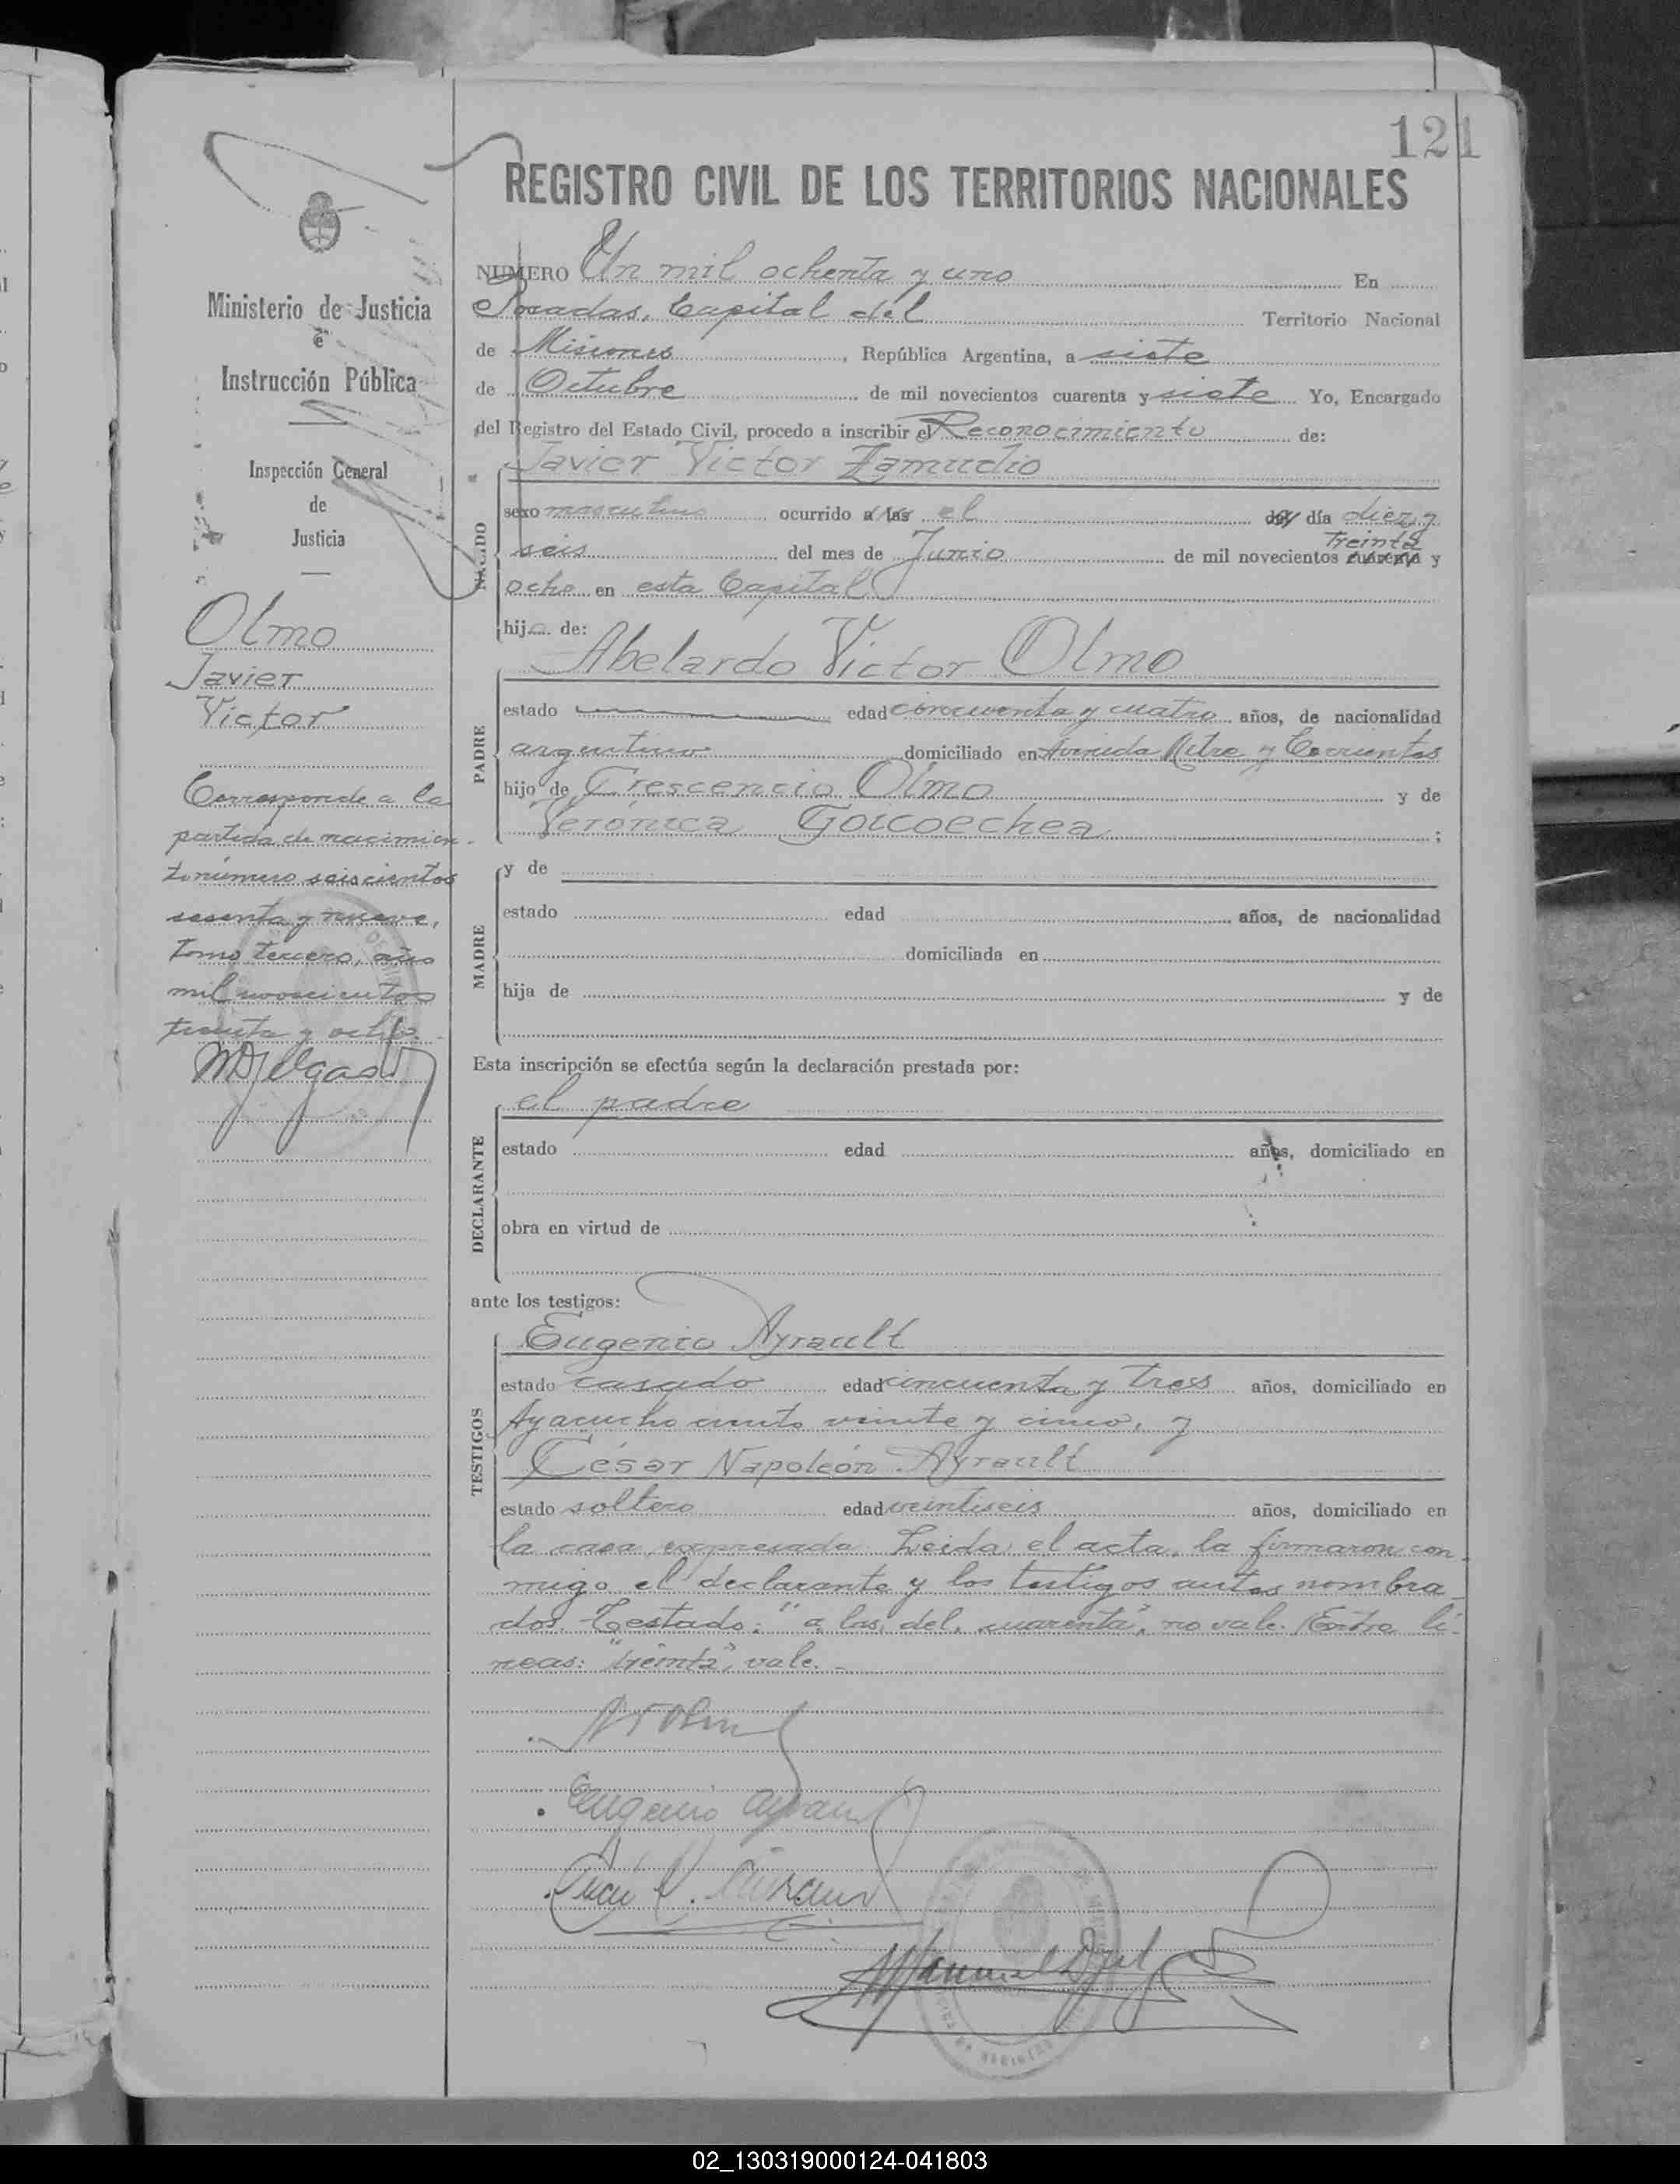 121
REGISTRO CIVIL DE LOS TERRITORIOS NACIONALES
Ministerio de Justicia
é
Instrucción Pública
Inspección General
de
Justicia
Olmo
Javier
Victor
Corresponde a la
partida de nacimien-
to número seiscientos
sesenta y nueve,
Tomo tercero, año
mil novecientos
treinta y ocho.
MDelgado
NUMERO Un mil ochenta y uno En
Posadas, Capital del Territorio Nacional
de Misiones, República Argentina, a siete
de Octubre de mil novecientos cuarenta y siete Yo, Encargado
del Registro del Estado Civil, procedo a inscribir el Reconocimiento de:
Javier Victor Zamudio
NACIDO
sexo masculino ocurrido a las el del día diez y
seis del mes de Junio de mil novecientos cuarenta treinta y
ocho en esta Capital
hijo de:
Abelardo Victor Olmo
PADRE
estado edad cincuenta y cuatro años, de nacionalidad
argentino domiciliado en Avenida Mitre y Corrientes
hijo de Crescencio Olmo y de
Verónica Goicoechea ;
MADRE
y de
estado edad años, de nacionalidad
domiciliada en
hija de y de
Esta inscripción se efectúa según la declaración prestada por:
el padre
DECLARANTE
estado edad años, domiciliado en
obra en virtud de
ante los testigos:
Eugenio Ayrault
TESTIGOS
estado casado edad cincuenta y tres años, domiciliado en
Ayacucho ciento veinte y cinco, y
César Napoleón Ayrault
estado soltero edad veintiseis años, domiciliado en
la casa expresada. Leida el acta, la firmaron con-
migo el declarante y los testigos antes nombra-
dos. Testado: "a las, del, cuarenta", no vale. Entre lí-
neas: "treinta", vale.-
Eugenio Ayrault
02_130319000124-041803